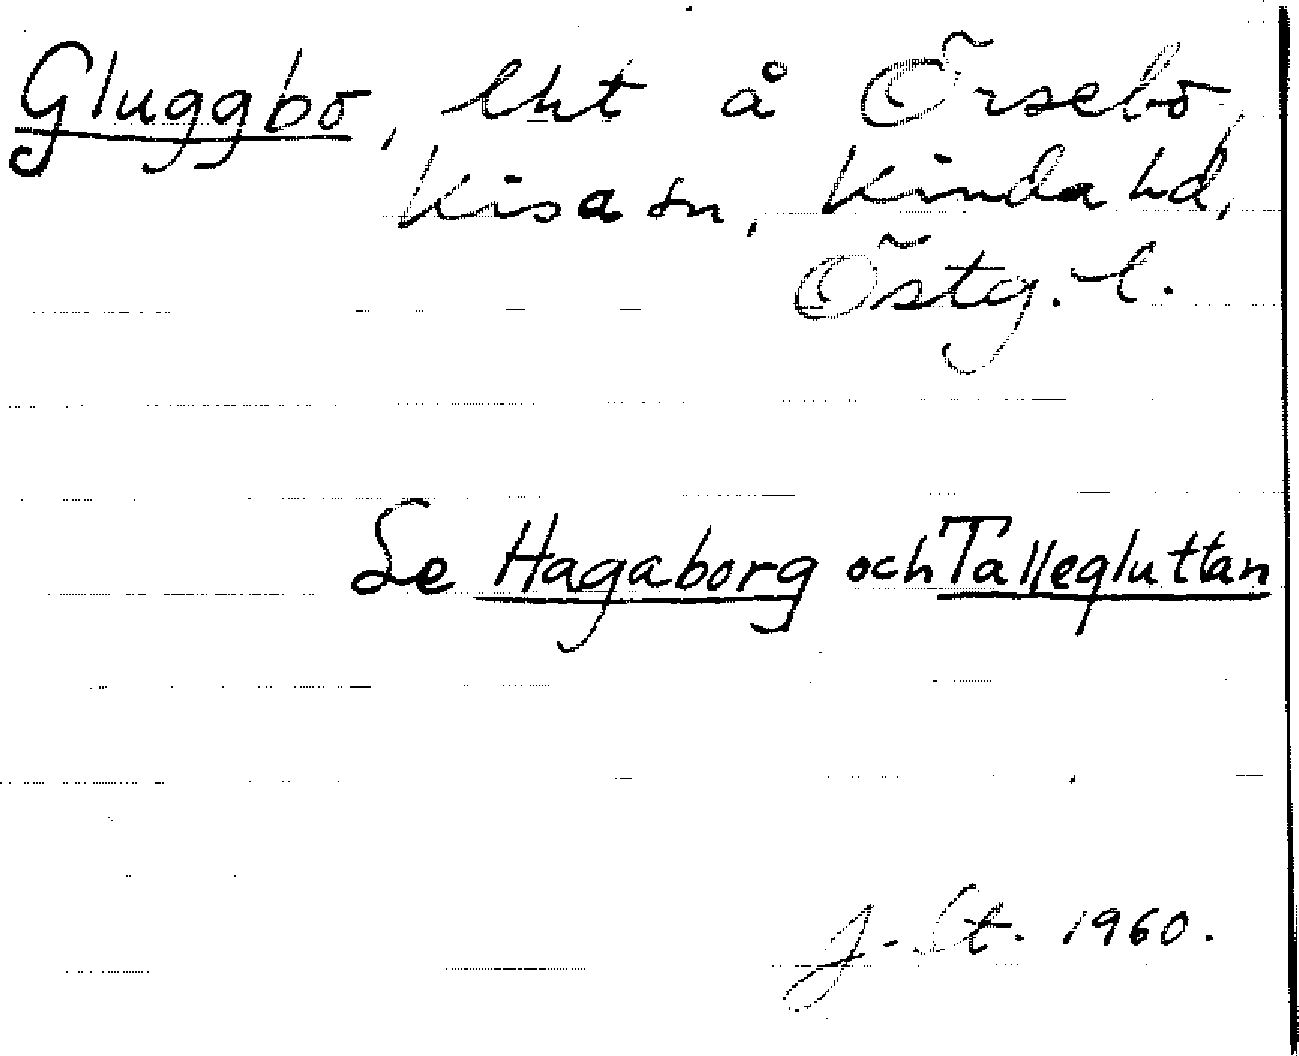 Gluggbo, lht å Örsebo,
Kisa sn, Kinda hd,
Östg. l.
Se Hagaborg och Tallegluttan
J. St. 1960.